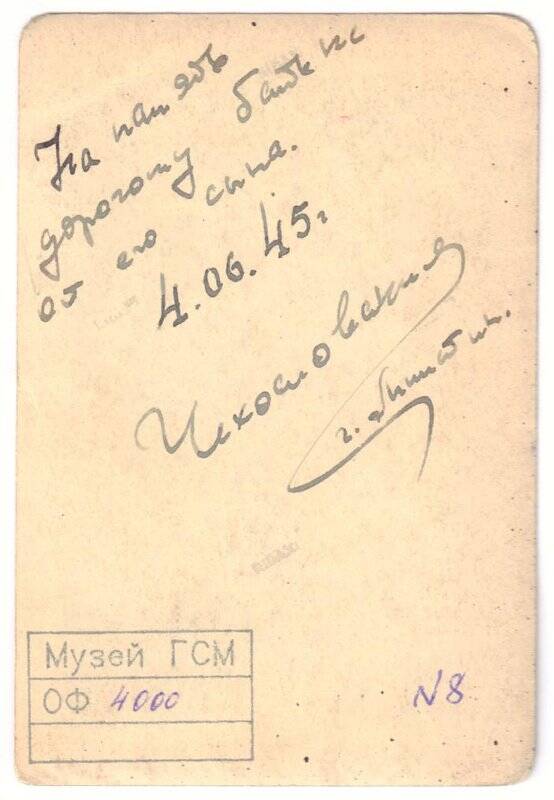 На память
дорогому батьке
от его сына.
4.06.45г
Чехословакия
г.
Музей ГСМ
ОФ 4000
N8